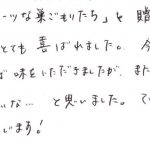 ーツな巣ごもりたち」を贈
とても喜ばれました。今
ば味をいただきましたが、また
いな… と思いました。て
じます!